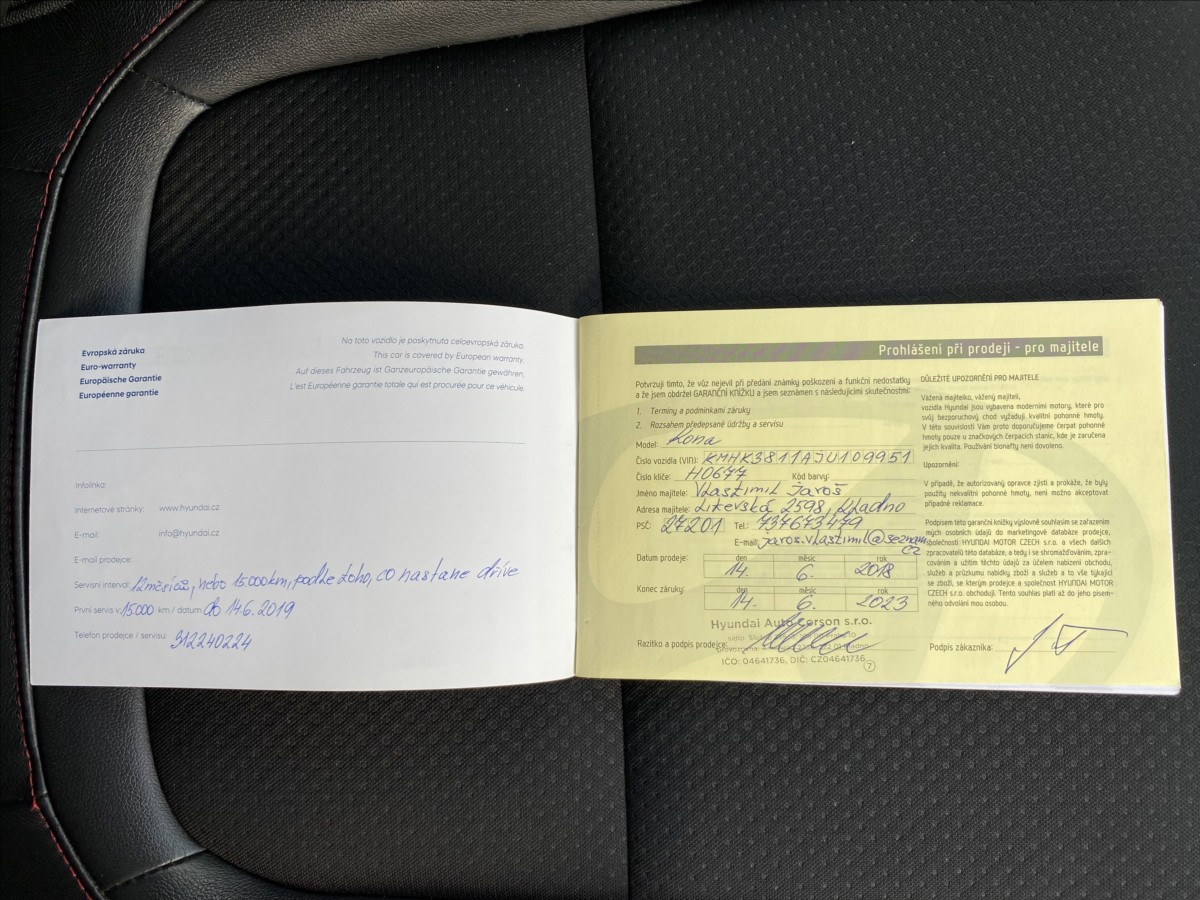 Evropská záruka
Euro-warranty
Europäische Garantie
Européenne garantie
Na toto vozidlo je poskytnuta celoevropská záruka.
This car is covered by European warranty.
Auf dieses Fahrzeug ist Ganzeuropäische Garantie gewähren.
L'est Européenne garantie totale qui est procurée pour ce véhicule.
Infolinka:
Internetové stránky: www.hyundai.cz
E-mail: info@hyundai.cz
E-mail prodejce:
Servisní interval: 12 měsíců, nebo 15.000 km, podle toho, co nastane dříve
První servis v: 15.000 km / datum: do 14.6.2019
Telefon prodejce / servisu: 312240224
Prohlášení při prodeji - pro majitele
Potvrzuji tímto, že vůz nejevil při předání známky poškození a funkční nedostatky
a že jsem obdržel GARANČNÍ KNÍŽKU a jsem seznámen s následujícími skutečnostmi:
1. Termíny a podmínkami záruky
2. Rozsahem předepsané údržby a servisu
Model: Kona
Číslo vozidla (VIN): KMHK3811AJU109951
Číslo klíče: H0677 Kód barvy:
Jméno majitele: Vlastimil Jaroš
Adresa majitele: Litevská 2598, Kladno
PSČ: 27201 Tel.: 737673479
E-mail: jaros.vlastimil@seznam.
cz
Datum prodeje: den měsíc rok
14. 6. 2018
Konec záruky: den měsíc rok
14. 6. 2023
Hyundai Auto Corson s.r.o.
Razítko a podpis prodejce:
IČO: 04641736, DIČ: CZ04641736
7
DŮLEŽITÉ UPOZORNĚNÍ PRO MAJITELE
Vážená majitelko, vážený majiteli,
vozidla Hyundai jsou vybavena moderními motory, které pro
svůj bezporuchový chod vyžadují kvalitní pohonné hmoty.
V této souvislosti Vám proto doporučujeme čerpat pohonné
hmoty pouze u značkových čerpacích stanic, kde je zaručena
jejich kvalita. Používání bionafty není dovoleno.
Upozornění:
V případě, že autorizovaný opravce zjistí a prokáže, že byly
použity nekvalitní pohonné hmoty, není možno akceptovat
případné reklamace.
Podpisem této garanční knížky výslovně souhlasím se zařazením
mých osobních údajů do marketingové databáze prodejce,
společnosti HYUNDAI MOTOR CZECH s.r.o. a všech dalších
zpracovatelů této databáze, a tedy i se shromažďováním, zpra-
cováním a užitím těchto údajů za účelem nabízení obchodu,
služeb a průzkumu nabídky zboží a služeb a to vše týkající
se zboží, se kterým prodejce a společnost HYUNDAI MOTOR
CZECH s.r.o. obchodují. Tento souhlas platí až do jeho písem-
ného odvolání mou osobou.
Podpis zákazníka: